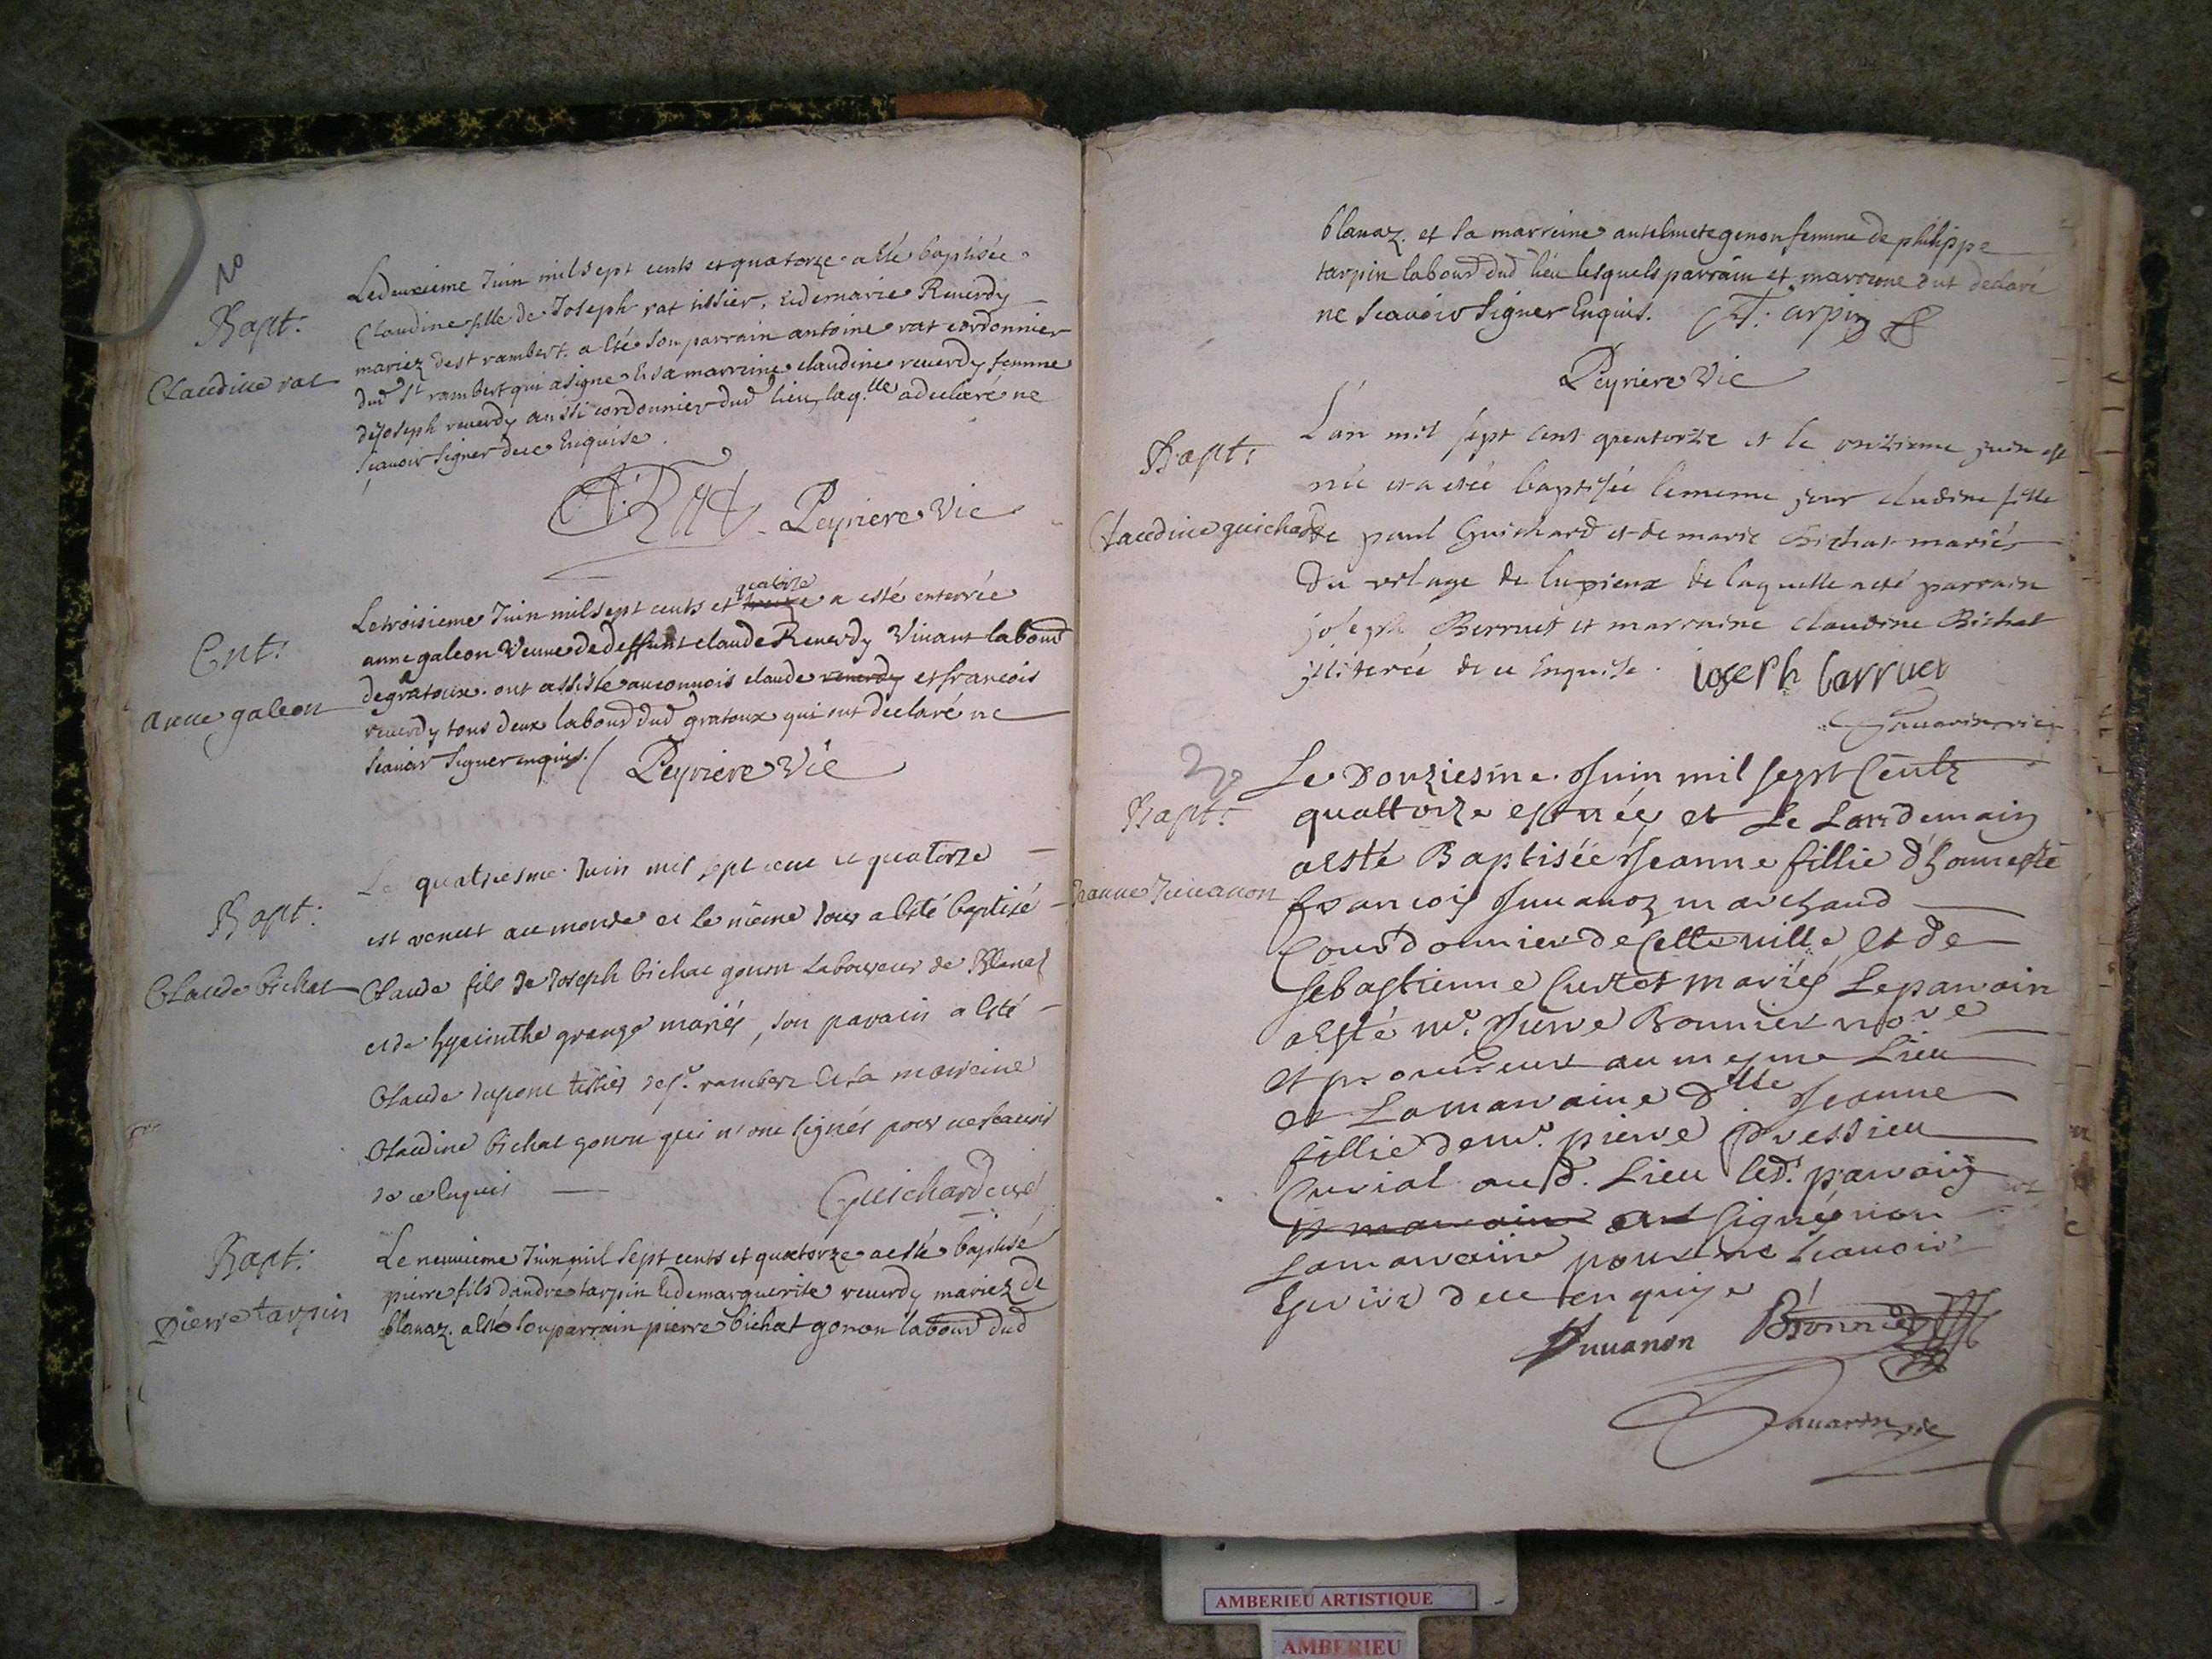 Bapt:
Claudine rat
Le deuxieme Juin mil sept cents et quatorze a esté baptisée
Claudine fille de Joseph rat tissier, et de marie Reverdy
mariez de st rambert. a esté son parrain antoine rat cordonnier
dud st rambert qui a signé et sa marreine claudine reverdy femme
de Joseph reverdy aussi cordonnier dud lieu, laq.lle a declaré ne
scavoir signer de ce Enquise.
A: Rat Peyriere Vic
Ent:
anne galeon
quatorze
Le troisieme Juin mil sept cents et a esté enterrée
anne galeon Veuve de deffunt claude Reverdy Vivant labour
de gratoux. ont assisté au convois claude reverdy et francois
reverdy tous deux labour dud gratoux qui ont declaré ne
scavoir signer enquis. Peyriere Vic
Bapt:
Claude bichat
Le quatriesme Juin mil sept cent et quatorze
est venut au monde et le même Jour a Esté baptisé
Claude fils de Joseph bichat gonon Laboureur de Blanaz
et de hyacinthe grange mariés, son parain a Esté
Claude dupont tissier de st. rambert Et sa mareine
Claudine bichat gonon qui n'ont signés pour ne scavoir
de ce Enquis Guichard curé
Bapt:
pierre tarpin
Le neuvieme Juin mil sept cents et quatorze a esté baptisé
pierre fils d'andré tarpin et de marguerite reverdy mariez de
blanaz. a Esté son parrain pierre bichat gonon labour dud
blanaz. et sa marreine antelmete genon femme de philippe
tarpin labour dud lieu lesquels parrain et marreine ont declaré
ne scavoir signer Enquis. A: tarpin
Peyriere Vic
Bapt:
Claudine guichard
L'an mil sept cent quatorze et le onzieme juin est
née et a estée baptisée le meme jour cludine fille
de paul Guichard et de marie Bichat mariés
du vilage de lupieux de laquelle a eté parrain
joseph Berruet et marraine claudine Bichat
illiterée de ce Enquise. ioseph barruet
Bapt:
Jeanne Juuanon
Le Douziesme Juin mil sept Centz
quattorze est née et Le Landemain
a esté Baptisée Jeanne fillie d'honneste
francois Juuanon marchand
Courdonnier de Cette ville et de
sebastienne Curtet mariés Le parrain
a esté me. Bonnier no.re
et procureur au mesme Lieu
et La marraine dlle Jeanne
fillie de me. pierre Dressieu
Curial aud. Lieu led. parrain
et marraine ont signé non
La marraine pour ne scauoir
Escrire de ce enquise
Juuanon Bonnier